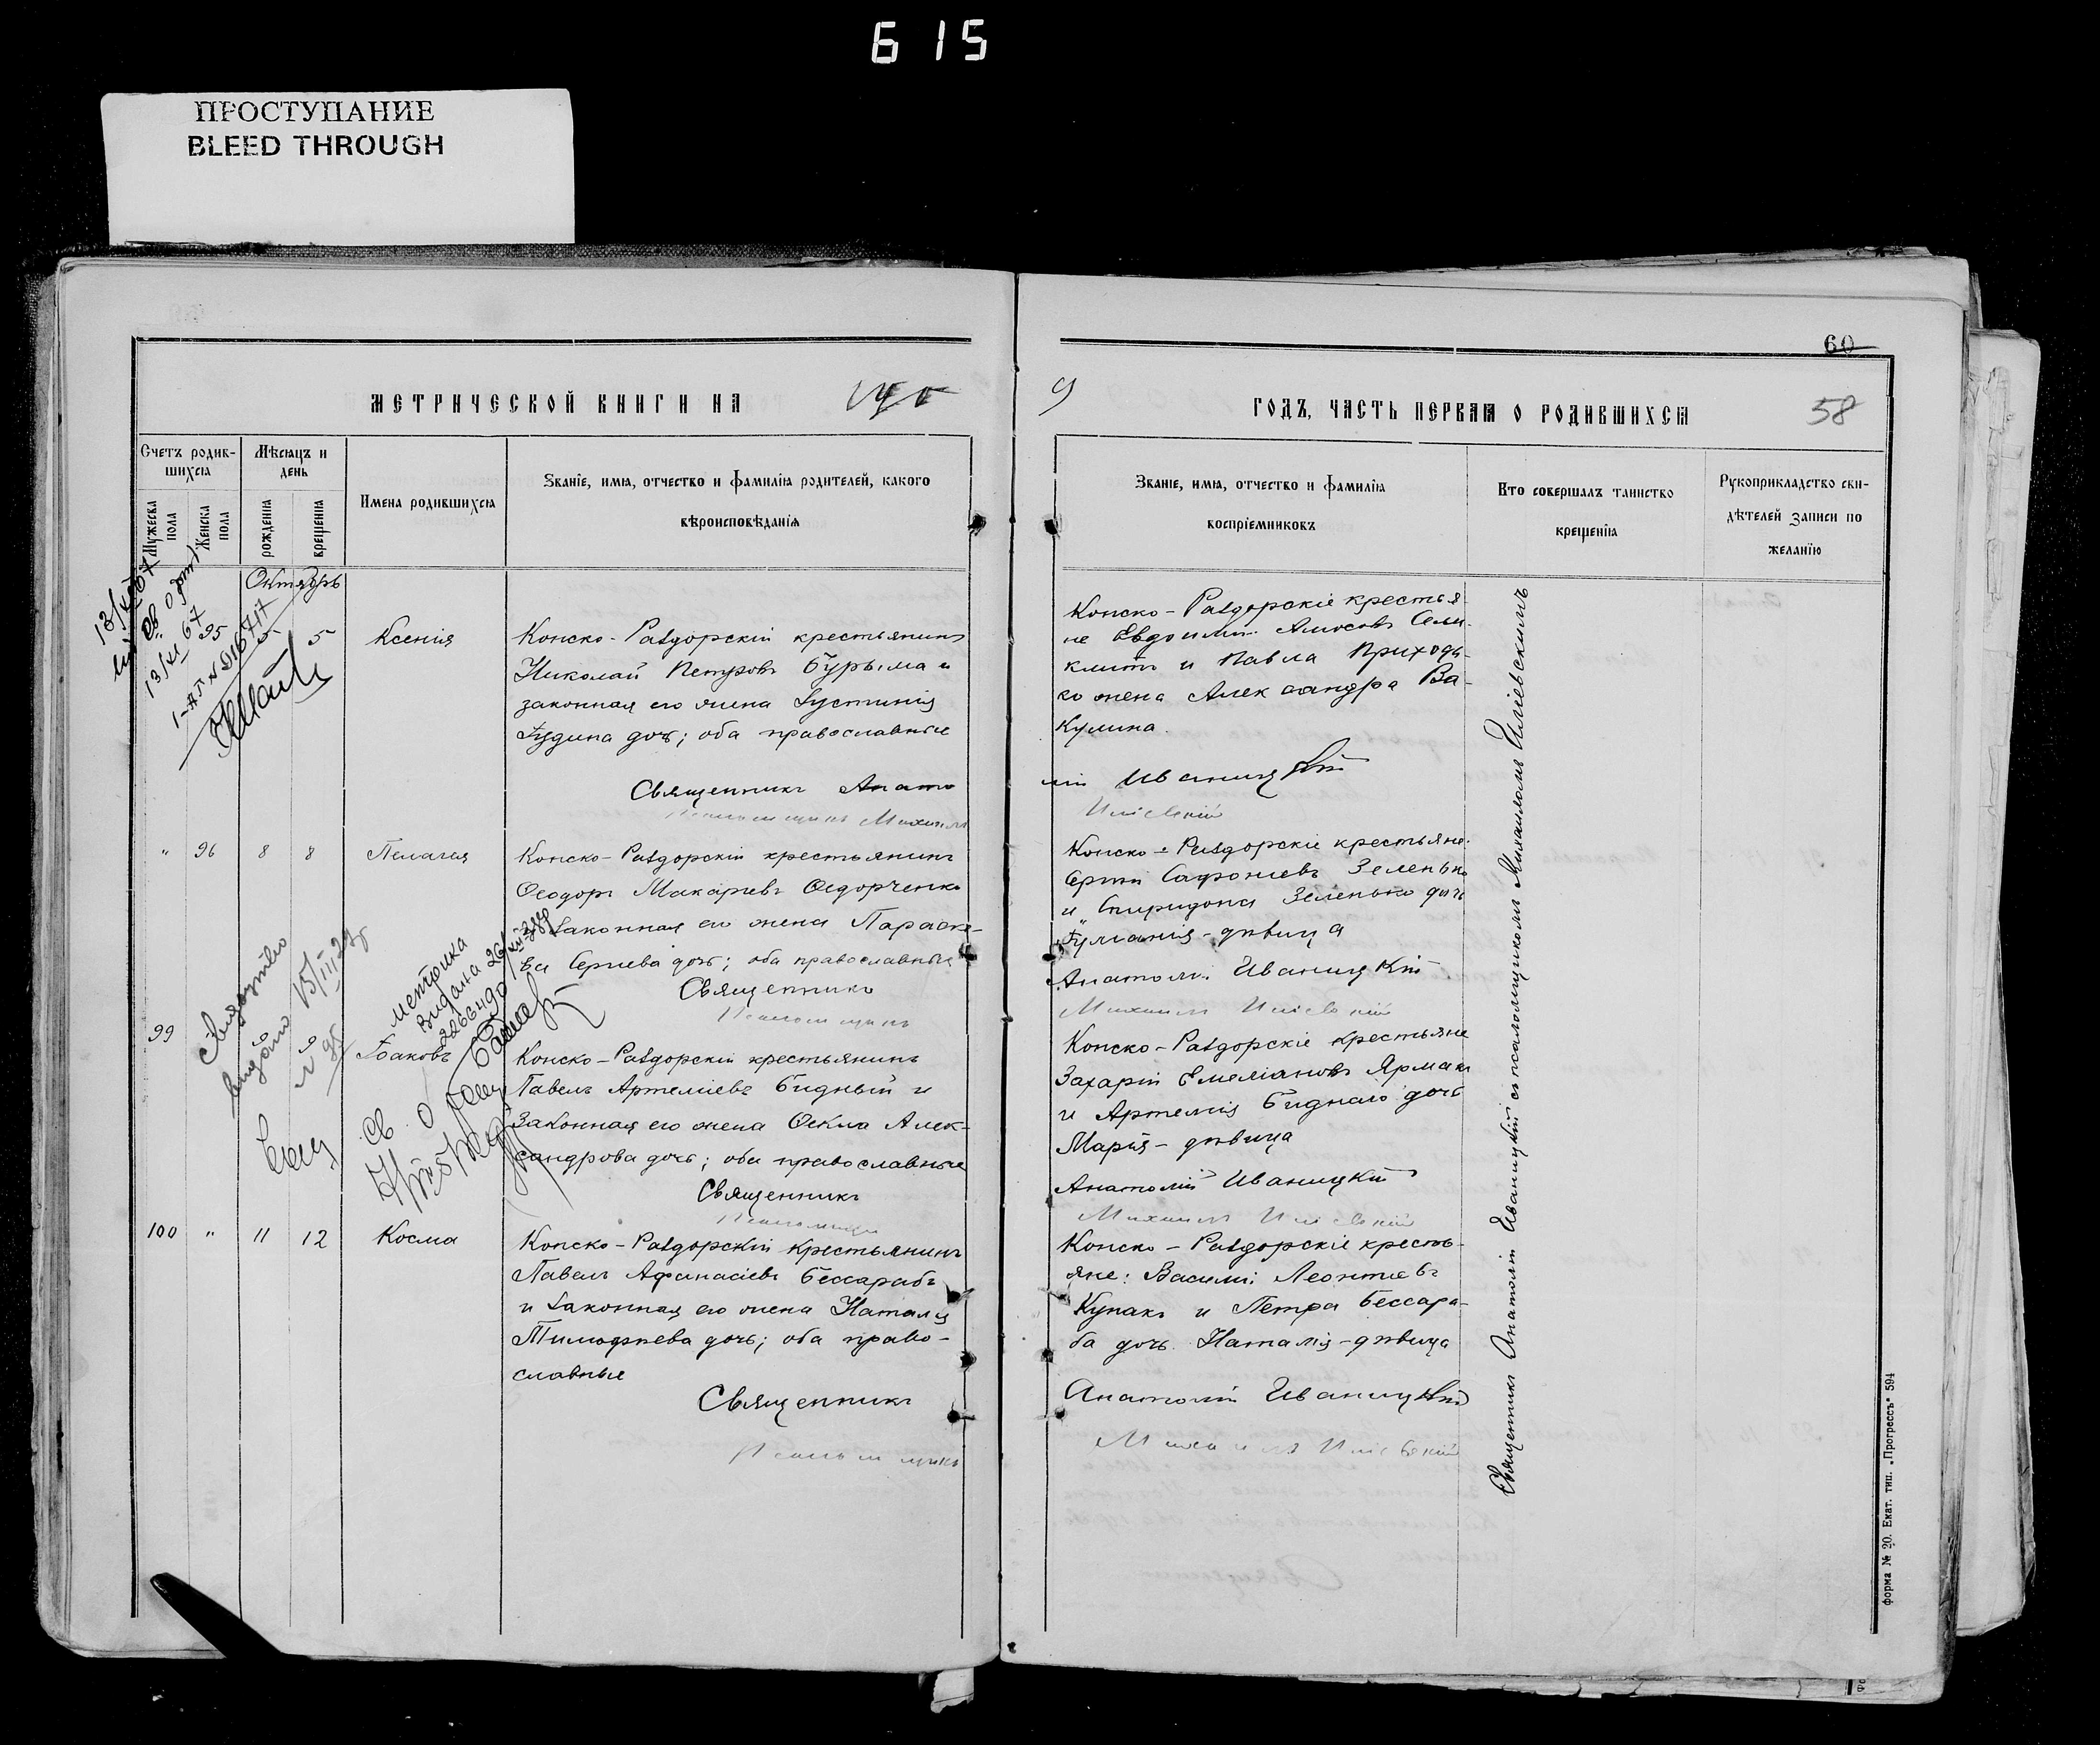 615
ПРОСТУПАНИЕ
BLEED THROUGH
60
МЕТРИЧЕСКОЙ КНИГИ НА
9
ГОДЪ, ЧАСТЬ ПЕРВАЯ О РОДИВШИХСЯ
58
Счетъ родившихся
Мужеска пола
Женска пола
Мѣсяцъ и день
рожденія
крещенія
Имена родившихся
Званіе, имя, отчество и фамилія родителей, какого
вѣроисповѣданія
Званіе, имя, отчество и фамилія
воспріемниковъ
Кто совершалъ таинство
крещенія
Рукоприкладство сви-
дѣтелей записи по
желанію
Октябрь
95 5 5 Ксенія
Конско-Раздорскій крестьянинъ
Николай Петровъ Бурыма и
законная его жена Іустинія
Іудина дочь; оба православные
Священникъ Анато
Псаломщикъ Михаилъ
Конско-Раздорскіе крестья-
не Евдоким Амосовъ
и Павла Приходь-
ко жена Александра Ва-
кулина.
лій Иваницкій
Иліевскій
" 96 8 8 Пелагея
Конско-Раздорскій крестьянинъ
Ѳеодоръ Макаріевъ Ѳедорченко
и законная его жена Параске-
ва Сергіева дочь; оба православные
Священникъ
Псаломщикъ
Конско-Раздорскіе крестьяне:
Сергій Сафроніевъ Зеленько
и Спиридона Зеленько дочь
Іуліанія-дѣвица
Анатолій Иваницкій
Михаилъ Иліевскій
99 " 9 9 Іаковъ
Конско-Раздорскій крестьянинъ
Павелъ Артеміевъ Бидный и
законная его жена Ѳекла Алек-
сандрова дочь; оба православные
Священникъ
Псаломщикъ
Конско-Раздорскіе крестьяне
Захарій Емеліановъ Ярмакъ
и Артемія Биднаго дочь
Марія-дѣвица
Анатолій Иваницкій
Михаилъ Иліевскій
100 " 11 12 Косма
Конско-Раздорскій крестьянинъ
Павелъ Афанасіевъ Бессарабъ
и законная его жена Наталія
Тимофеева дочь; оба право-
славные
Священникъ
Псаломщикъ
Конско-Раздорскіе кресть-
яне: Василій Леонтіевъ
Купакъ и Петра Бессара-
ба дочь Наталія-дѣвица
Анатолій Иваницкій
Михаилъ Иліевскій
Священникъ Анатолій Иваницкій съ псаломщикомъ Михаиломъ Иліевскимъ
метрика
видана
форма № 20. Екат. тип. „Прогрессъ" 594